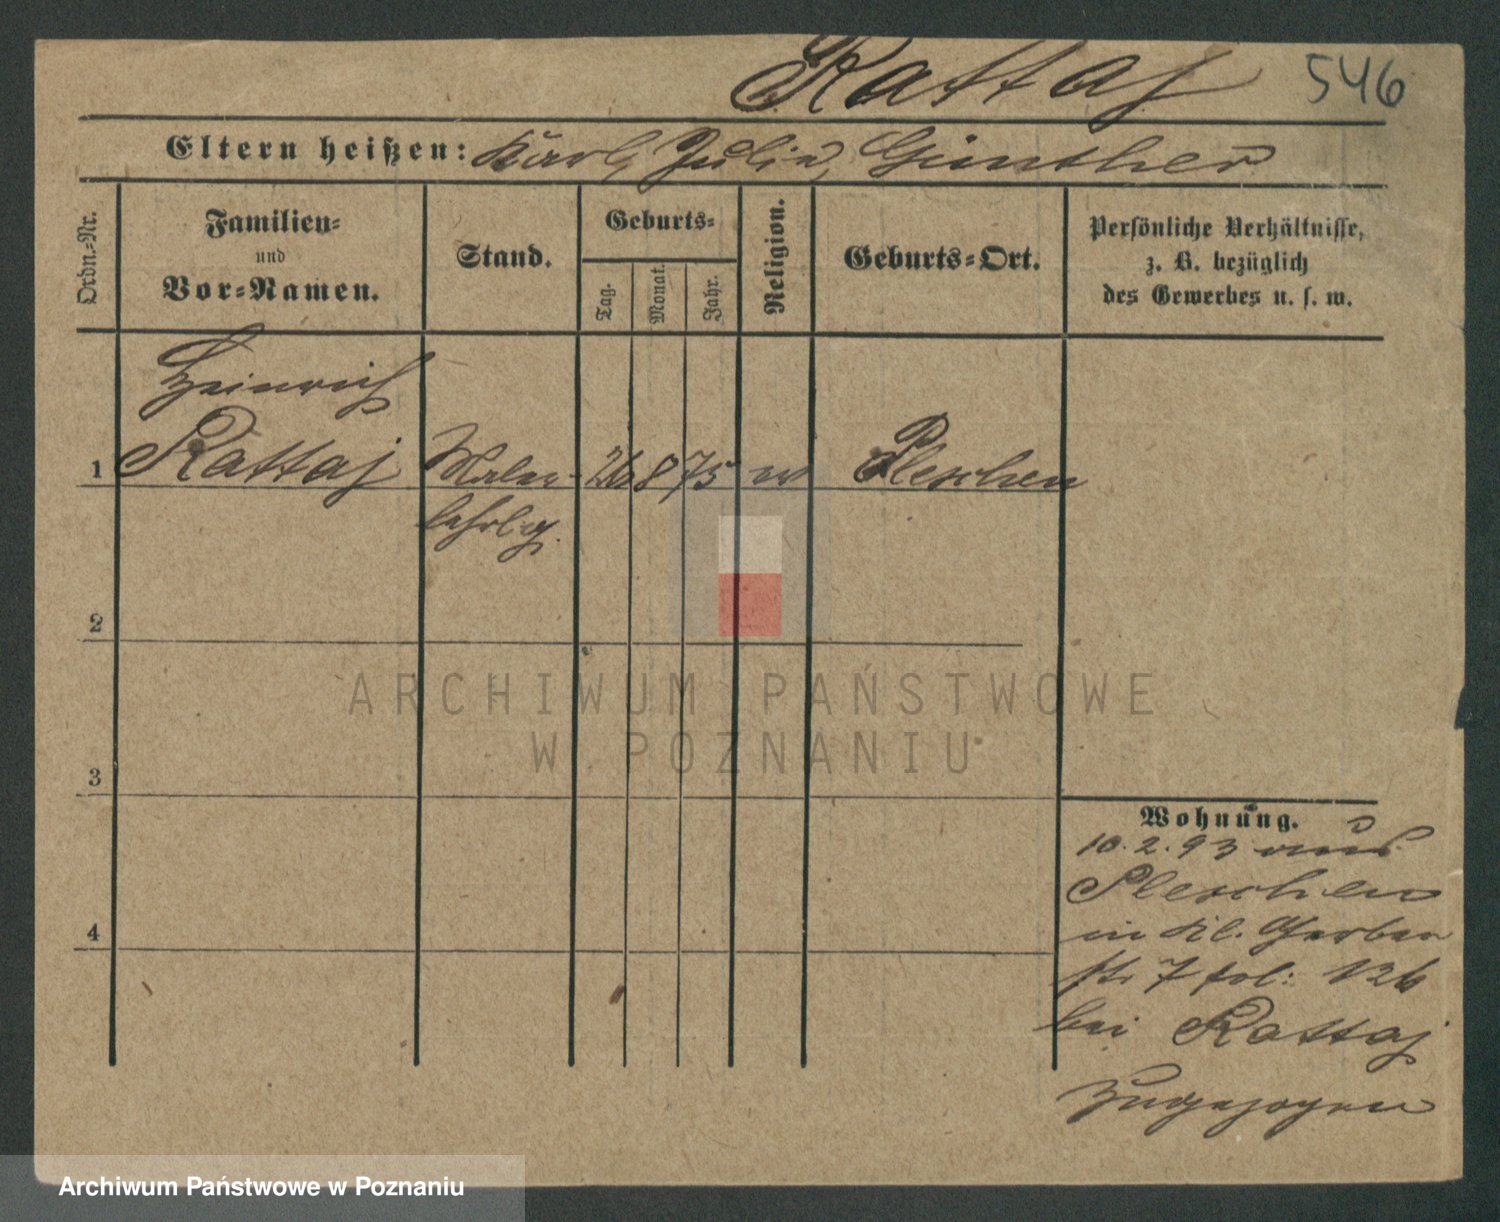 Rattaj 546
Eltern heißen: Karl, Julie, Günther
Ordn.-Nr.
Familien-
und
Vor-Namen.
Stand.
Geburts-
Tag.
Monat.
Jahr.
Religion.
Geburts-Ort.
Persönliche Verhältnisse,
z. B. bezüglich
des Gewerbes u. s. w.
Heinrich
1 Rattaj Maler- 26 8 75 Pleschen
lehrlg.
2
3
4
Wohnung.
10.2.93 aus
Pleschen
in Kl. Gerber
str 7 fol: 126
bei Rattaj
zugezogen
ARCHIWUM PAŃSTWOWE
W POZNANIU
Archiwum Państwowe w Poznaniu